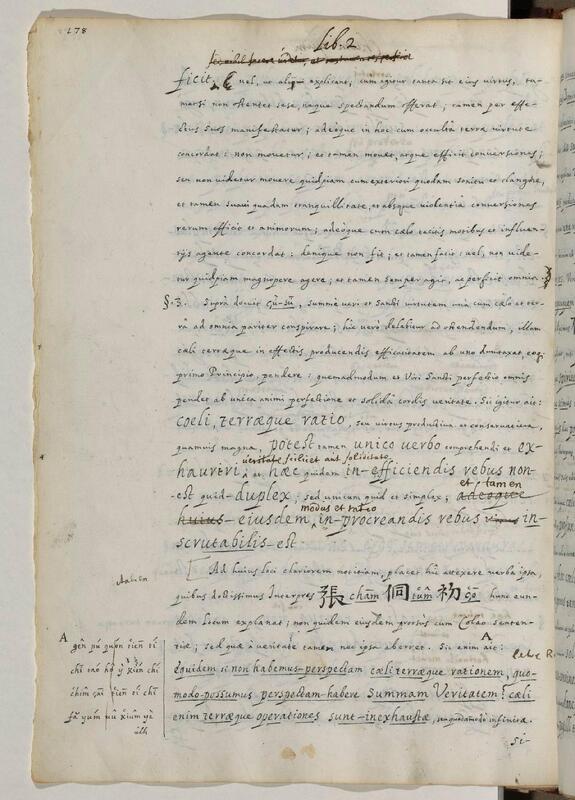 178
Lib. 2
ficit; vel, ut aliqui explicant, cum agitur tanta sit eius virtus, ta-
metsi non ostentet sese, neque spectandum offerat; tamen per effe-
ctus suos manifestatur; adeoque in hoc cum occultâ terræ virtute
concordat: non movetur; et tamen movet, atque efficit conversiones;
seu non videtur movere quidpiam cum exteriori quodam sonitu et clangore,
et tamen suavi quadam tranquillitate, et absque violentiâ conversiones
rerum efficit et animorum; adeoque cum cælo tacitis motibus et influen-
tijs agente concordat: denique non fit; et tamen facit: vel, non vide-
tur quidpiam magnopere agere; et tamen semper agit, ac perficit omnia.
§. 3. Suprà docuit çù-sū, summè veri et Sancti virtutem unà cum cælo et ter-
râ ad omnia pariter conspirare; hîc verò delabitur ad ostendendum, illam
cæli terræque in effectis producendis efficacitatem ab uno dumtaxat eoq;
primo Principio, pendere: quemadmodum et Viri Sancti perfectio omnis
pendet ab unica animi perfectione et solidâ cordis veritate. Sic igitur ait:
coeli, terræque ratio, seu virtus productiva et conservativa,
quamvis magna, potest tamen unico verbo comprehendi et ex-
veritate scilicet aut soliditate
hauriri; et hæc quidem in efficiendis rebus non
et tamen
est quid duplex; sed unicum quid et simplex; adeoque
modus et ratio
huius eiusdem in procreandis rebus in-
scrutabilis est
Ad huius loci clariorem notitiam, placet hîc attexere verba ipsa,
quibus doctissimus Interpres 張 chām 侗 tūm 初 çō hunc eun-
dem locum explanat; non quidem eiusdem prorsus cum Colao senten-
tiæ; sed quæ à veritate tamen nec ipsa aberret. Sic enim ait: A
équidem si non habemus perspectam cæli terræque rationem, quo-
modo possumus perspectam habere Summam Veritatem? cæli
enim terræque operationes sunt inexhaustæ, et quodammodo infinitæ.
Si-
A